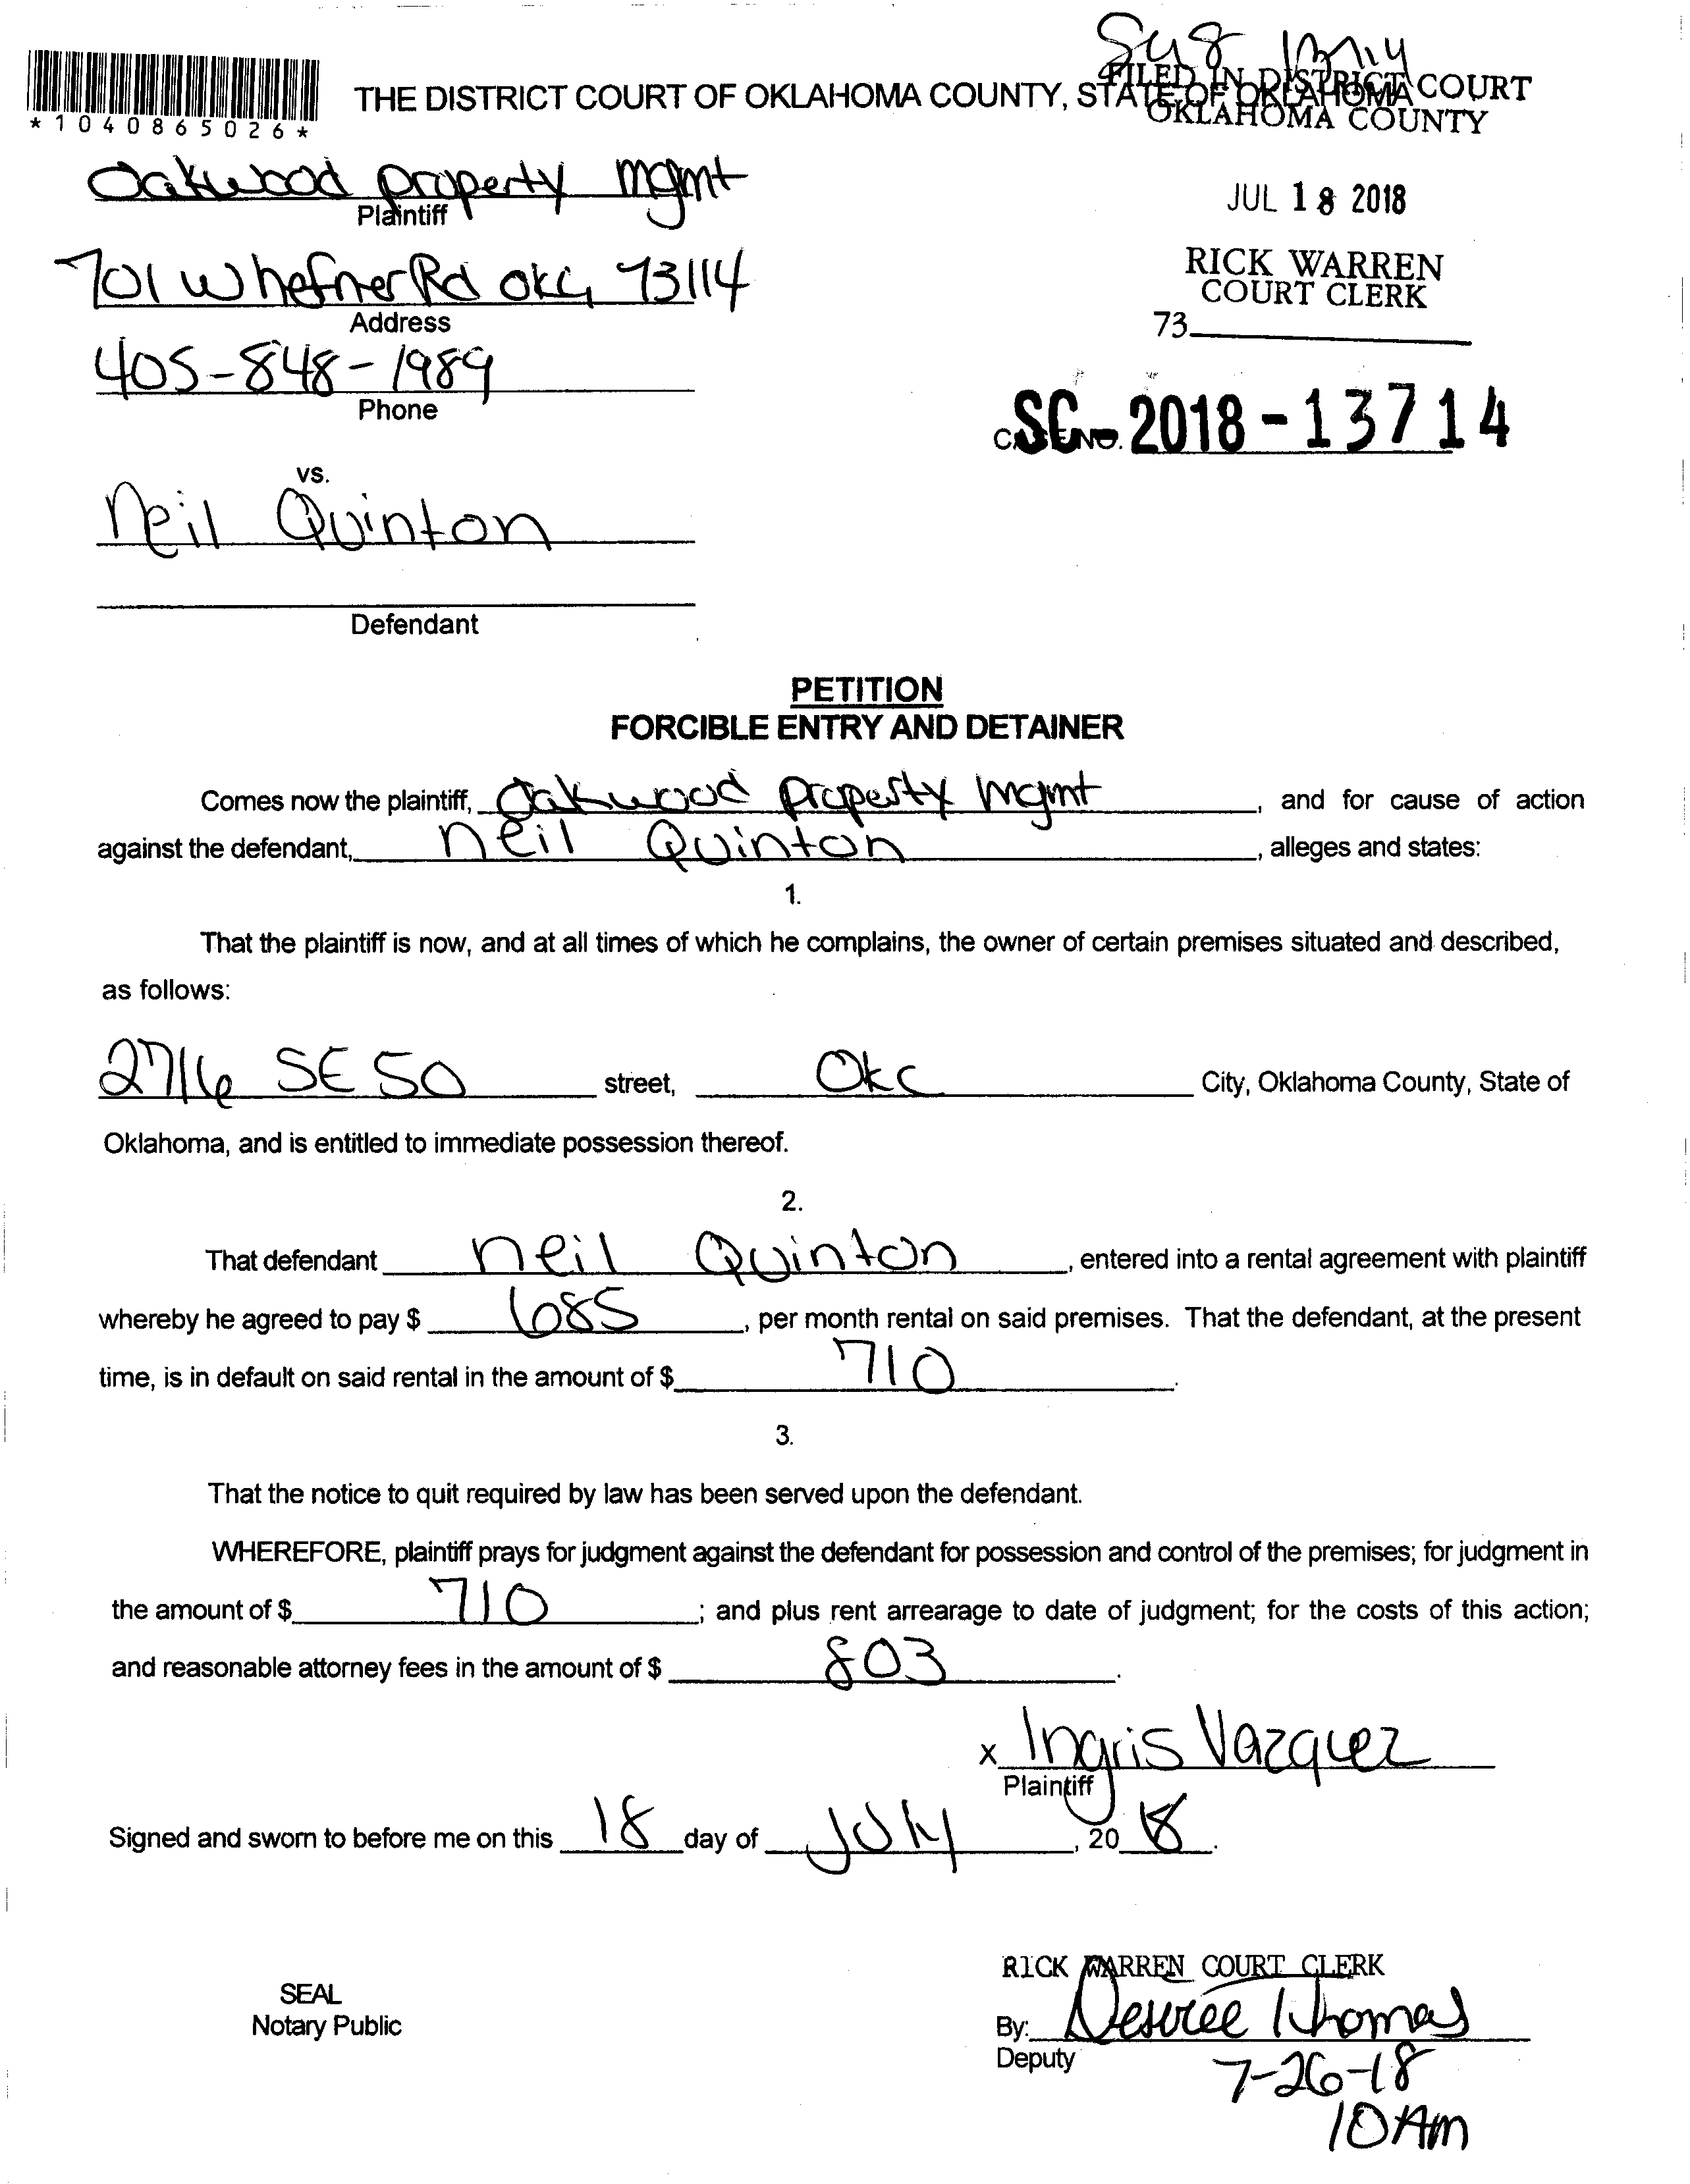 *1040865026*
THE DISTRICT COURT OF OKLAHOMA COUNTY, STATE OF OKLAHOMA
FILED IN DISTRICT COURT
OKLAHOMA COUNTY
JUL 18 2018
RICK WARREN
COURT CLERK
73
Oakwood property mgmt
Plaintiff
701 W hefner Rd okc, 73114
Address
405-848-1989
Phone
CASE NO. SC-2018-13714
vs.
Neil Quinton
Defendant
PETITION
FORCIBLE ENTRY AND DETAINER
Comes now the plaintiff, Oakwood property mgmt, and for cause of action
against the defendant, neil Quinton, alleges and states:
1.
That the plaintiff is now, and at all times of which he complains, the owner of certain premises situated and described,
as follows:
2716 SE 50 street, OKC City, Oklahoma County, State of
Oklahoma, and is entitled to immediate possession thereof.
2.
That defendant neil Quinton, entered into a rental agreement with plaintiff
whereby he agreed to pay $ 685, per month rental on said premises. That the defendant, at the present
time, is in default on said rental in the amount of $ 710.
3.
That the notice to quit required by law has been served upon the defendant.
WHEREFORE, plaintiff prays for judgment against the defendant for possession and control of the premises; for judgment in
the amount of $ 710; and plus rent arrearage to date of judgment; for the costs of this action;
and reasonable attorney fees in the amount of $ 803.
x Ingris Vazquez
Plaintiff
Signed and sworn to before me on this 18 day of July, 20 18.
RICK WARREN COURT CLERK
SEAL
Notary Public
By: Desiree Thomas
Deputy
7-26-18
10 Am